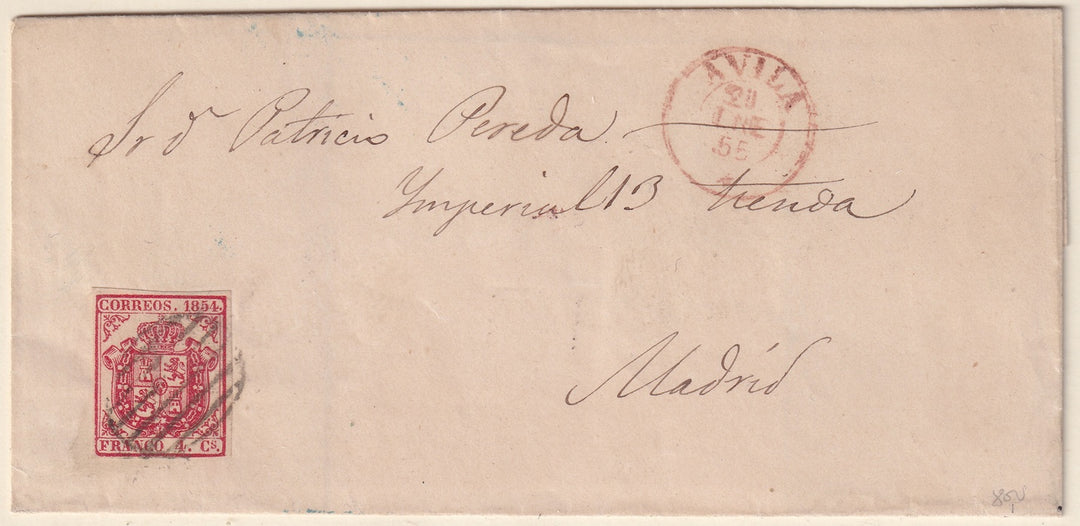 AVILA
ENE
55
Sr dⁿ Patricio Pereda
Imperial 13 tienda
CORREOS. 1854.
FRANCO 4. Cs.
Madrid